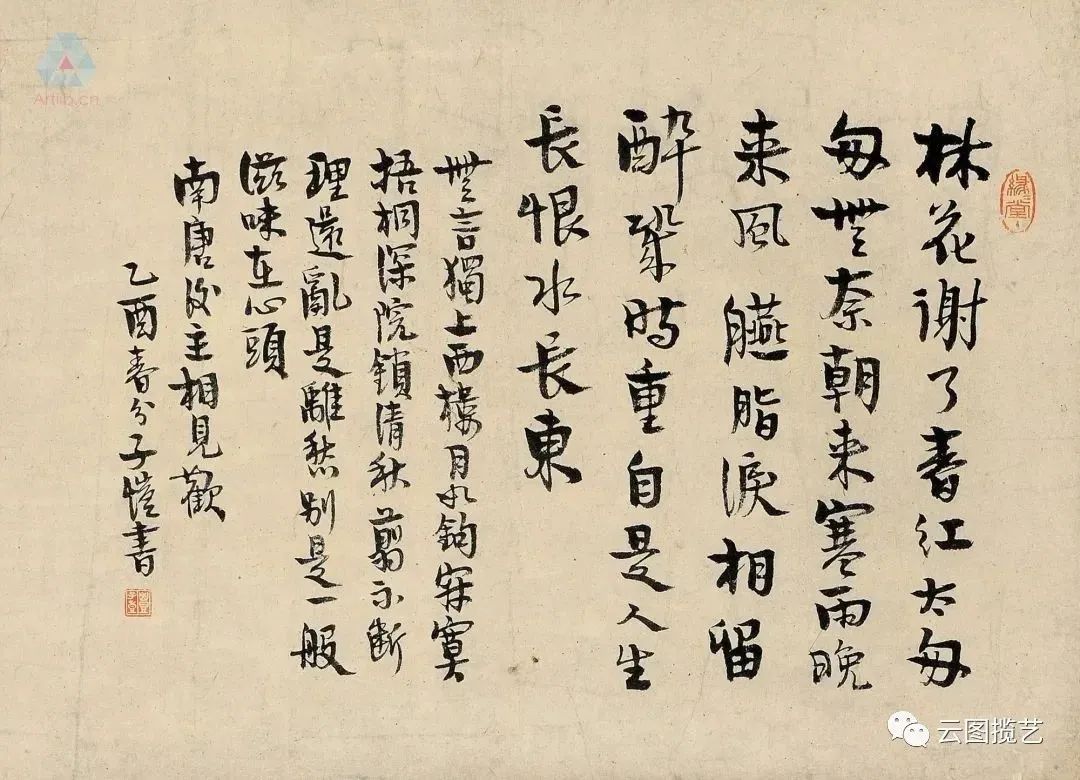 缘堂
林花谢了春红太匆
匆無奈朝来寒雨晚
来风臙脂淚相留
醉幾時重自是人生
長恨水長東
無言獨上西樓月如鉤寂寞
梧桐深院鎖清秋翦不斷
理還亂是離愁别是一般
滋味在心頭
南唐後主相見歡
乙酉春分子愷書
Artlib.cn
云图揽艺